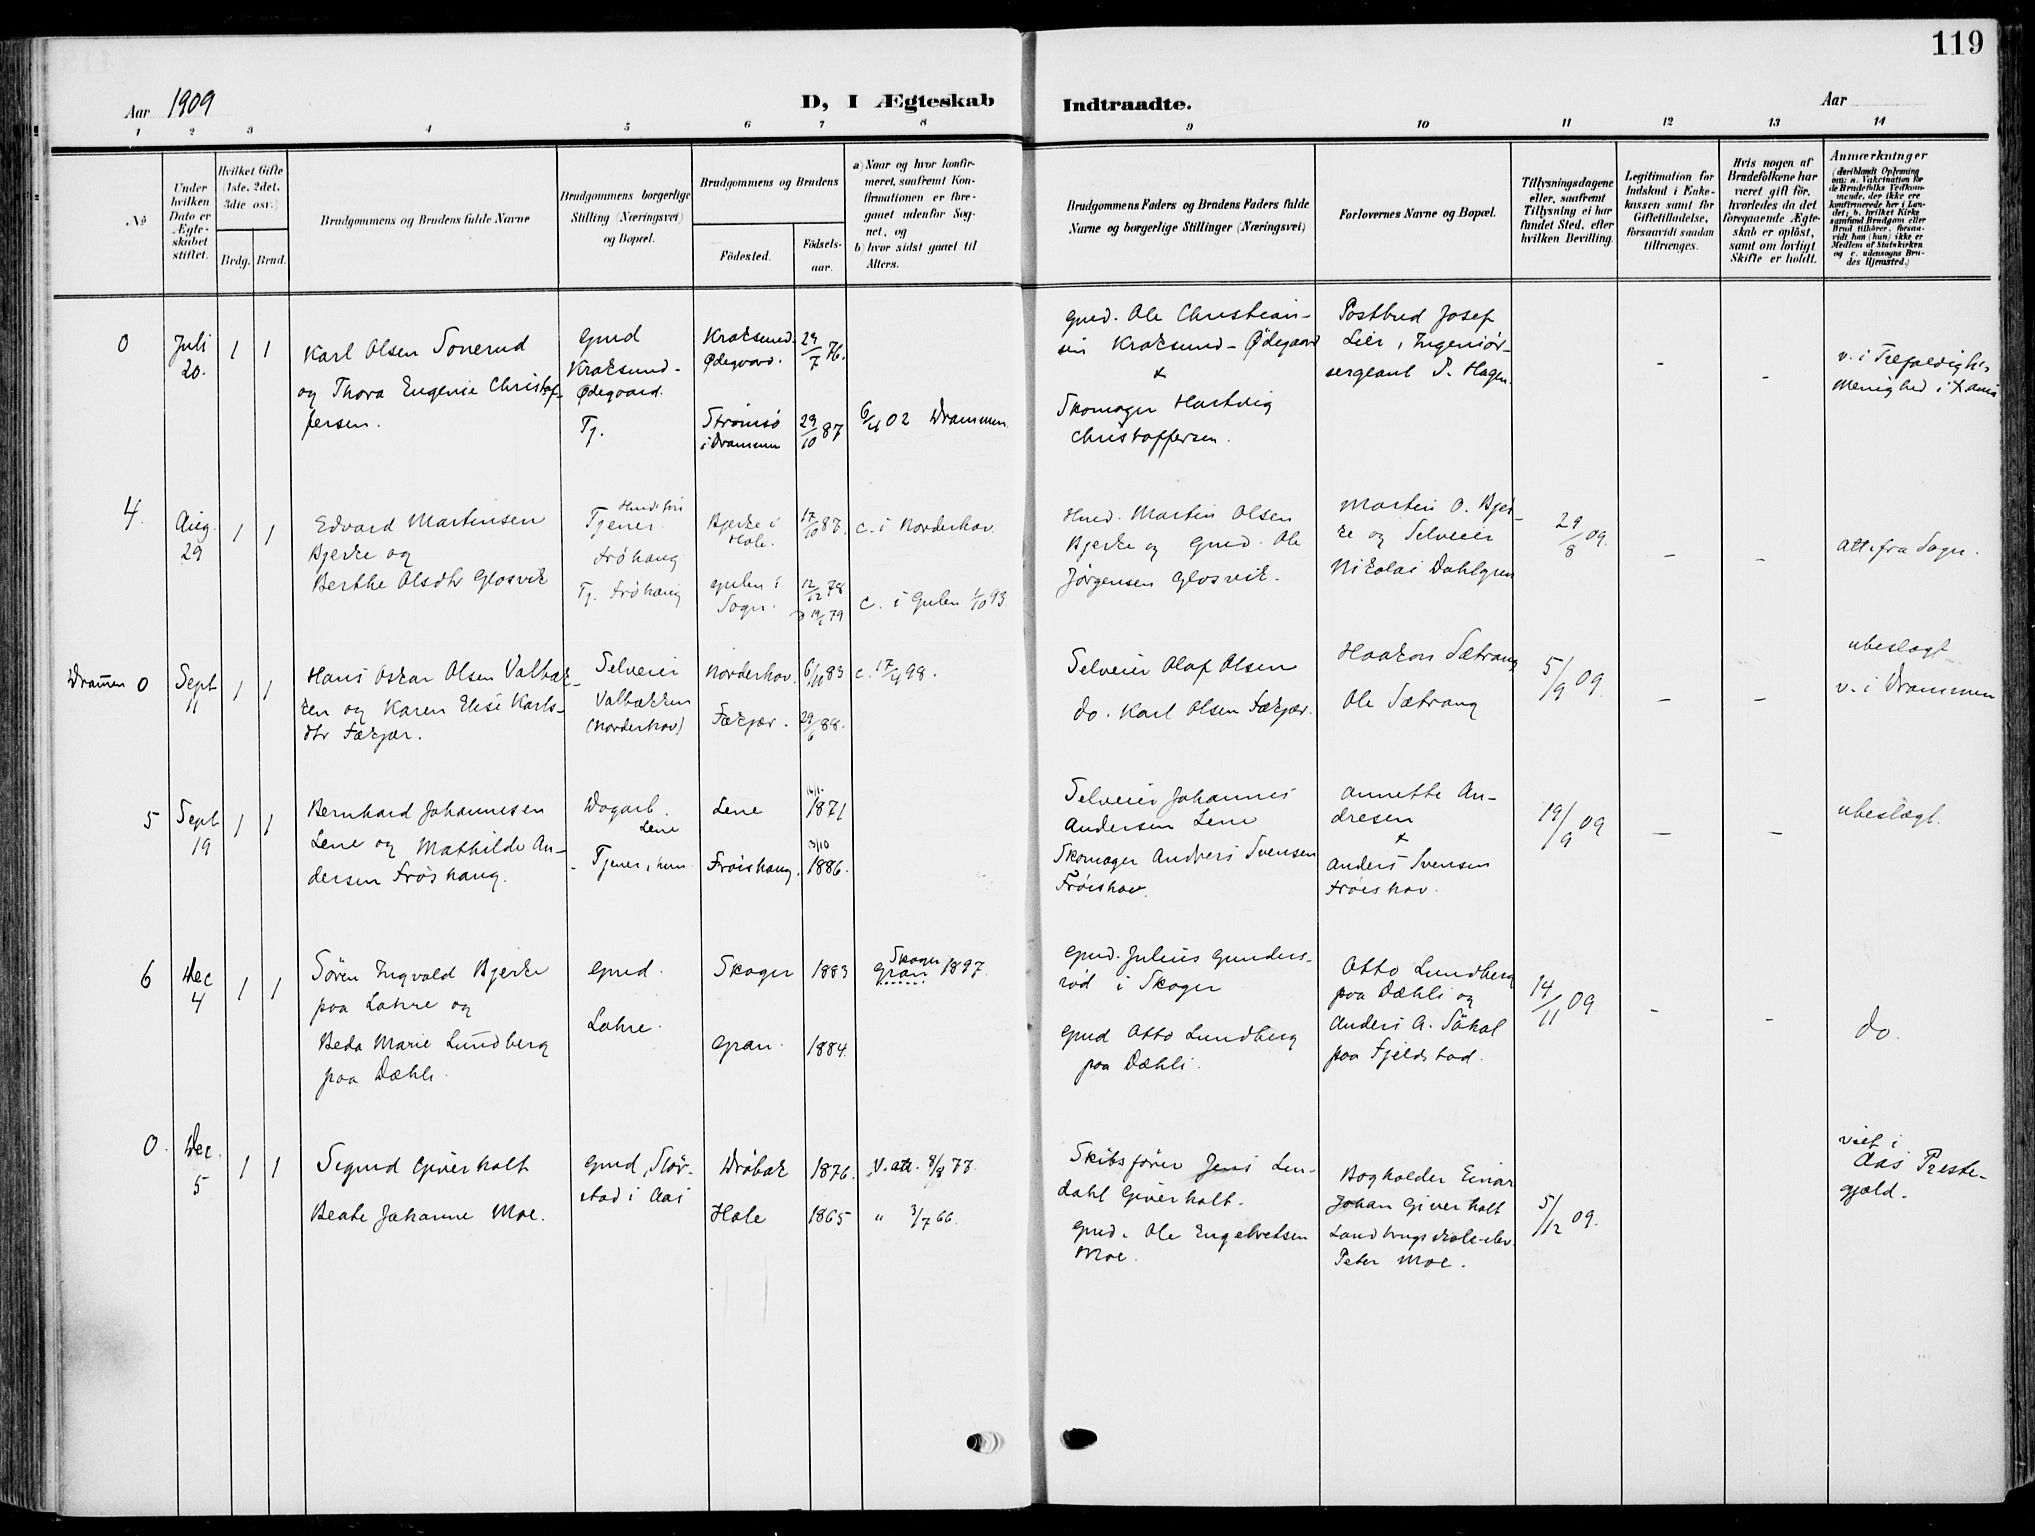 119
Aar 1909
D, I Ægteskab
Indtraadte.
Aar
1 2 3 4 5 6 7 8 9 10 11 12 13 14
No
Under hvilken Dato er Ægteskabet stiftet.
Hvilket Gifte (1ste, 2det, 3die osv.)
Brdg. Brud.
Brudgommens og Brudens fulde Navne
Brudgommens borgerlige Stilling (Næringsvei) og Bopæl.
Brudgommens og Brudens
Födested.
Födsels-aar.
a) Naar og hvor konfir-
meret, saafremt Kon-
firmationen er fore-
gaaet udenfor Sog-
net, og
b) hvor sidst gaaet til
Alters.
Brudgommens Faders og Brudens Faders fulde
Navne og borgerlige Stillinger (Næringsvei)
Forlovernes Navne og Bopæl.
Tillysningsdagene
eller, saafremt
Tillysning ei har
fundet Sted, efter
hvilken Bevilling.
Legitimation for
Indskud i Enke-
kassen samt for
Giftetilladelse,
forsaavidt saadan
tiltrænges.
Hvis nogen af
Brudefolkene har
været gift för,
hvorledes da det
foregaaende Ægte-
skab er oplöst,
samt om lovligt
Skifte er holdt.
Anmærkninger
(deriblandt Oplysning
om: a. Vaksination for
de Brudefolks Vedkom-
mende, der ikke ere
konfirmerede her i Lan-
det; b. hvilket Kirke-
samfund Brudgom eller
Brud tilhører, forsaa-
vidt han (hun) ikke er
Medlem af Statskirken
og c. udensogns Bru-
des Hjemsted.)
0
Juli
20.
1 1
Karl Olsen Sonerud
og Thora Eugenie Christof-
fersen.
Gmd
Kroksund-
Ødegaard.
Tj.
Kroksund-
Ødegaard.
Strömsö
i Drammen
29/7 76.
29/10 87
6/4 02 Drammen.
Gmd. Ole Christian-
sen Kroksund-Ødegaard
&
Skomager Hartvig
Christoffersen.
Postbud Josef
Lier, Ingeniör-
sergeant P. Hagen.
-
-
v. i Trefoldigh.s
Menighed i X.ania
4.
Aug.
29
1 1
Edvard Martinsen
Bjerke og
Berthe Olsdtr Glosvik
Tjener
Fröhaug
Tj. Fröhaug
Bjerke i
Hole.
Gulen i
Sogn.
17/10 87.
12/12 78
c. i Norderhov.
c. i Gulen 1/10 93.
Hmd. Martin Olsen
Bjerke og Gmd. Ole
Jörgensen Glosvik.
Martin O. Bjer-
ke og Selveier
Nikolai Dahlgren
29/8 09.
-
-
Att. fra Sogn.
Drammen 0
Sept
11
1 1
Hans Oskar Olsen Valbak-
ken og Karen Elise Karls-
dtr Fækjær.
Selveier
Valbakken
(Norderhov)
Norderhov.
Fækjær.
6/11 83
29/6 88.
c. 17/4 98.
Selveier Olaf Olsen
do. Karl Olsen Fækjær.
Haakon Sætrang
Ole Sætrang
5/9 09.
-
-
ubeslægt
v. i Drammen
5
Sept
19
1 1
Bernhard Johannesen
Lene og Mathilde An-
dersen Fröshaug.
Dagarb.
Lene
- Tjener, hun
Lene
Fröishaug.
1871
3/10
1886.
Selveier Johannes
Andersen Lene
Skomager Anders Svensen
Fröishov.
Annette An-
dresen
+
Anders Svensen
Fröishov.
19/9 09
-
-
ubeslægt.
6
Dec
4
1 1
Sören Ingvald Bjerke
paa Lahre og
Beda Marie Lundberg
paa Dæhli.
Gmd.
Lahre.
Skoger
Gran.
1883
1884.
Skoger
Gran 1897.
Gmd. Julius Gunders-
röd i Skoger
Gmd Otto Lundberg
paa Dæhli.
Otto Lundberg
paa Dæhli og
Anders A. Söhol
paa Fjeldstad.
14/11 09.
-
-
do.
0.
Dec.
5
1 1
Sigurd Giverholt
Beate Johanne Moe.
Gmd, Stör-
stad i Aas
Dröbak
Hole
1876.
1865
V. att. 8/8 77.
" 3/7 66.
Skibsförer Jens Lin-
dahl Giverholt.
Gmd. Ole Engebretsen
Moe.
Bogholder Einar
Johan Giverholt
Landbrugsskole-elev
Peter Moe.
5/12 09.
viet i
Aas Preste-
gjæld.